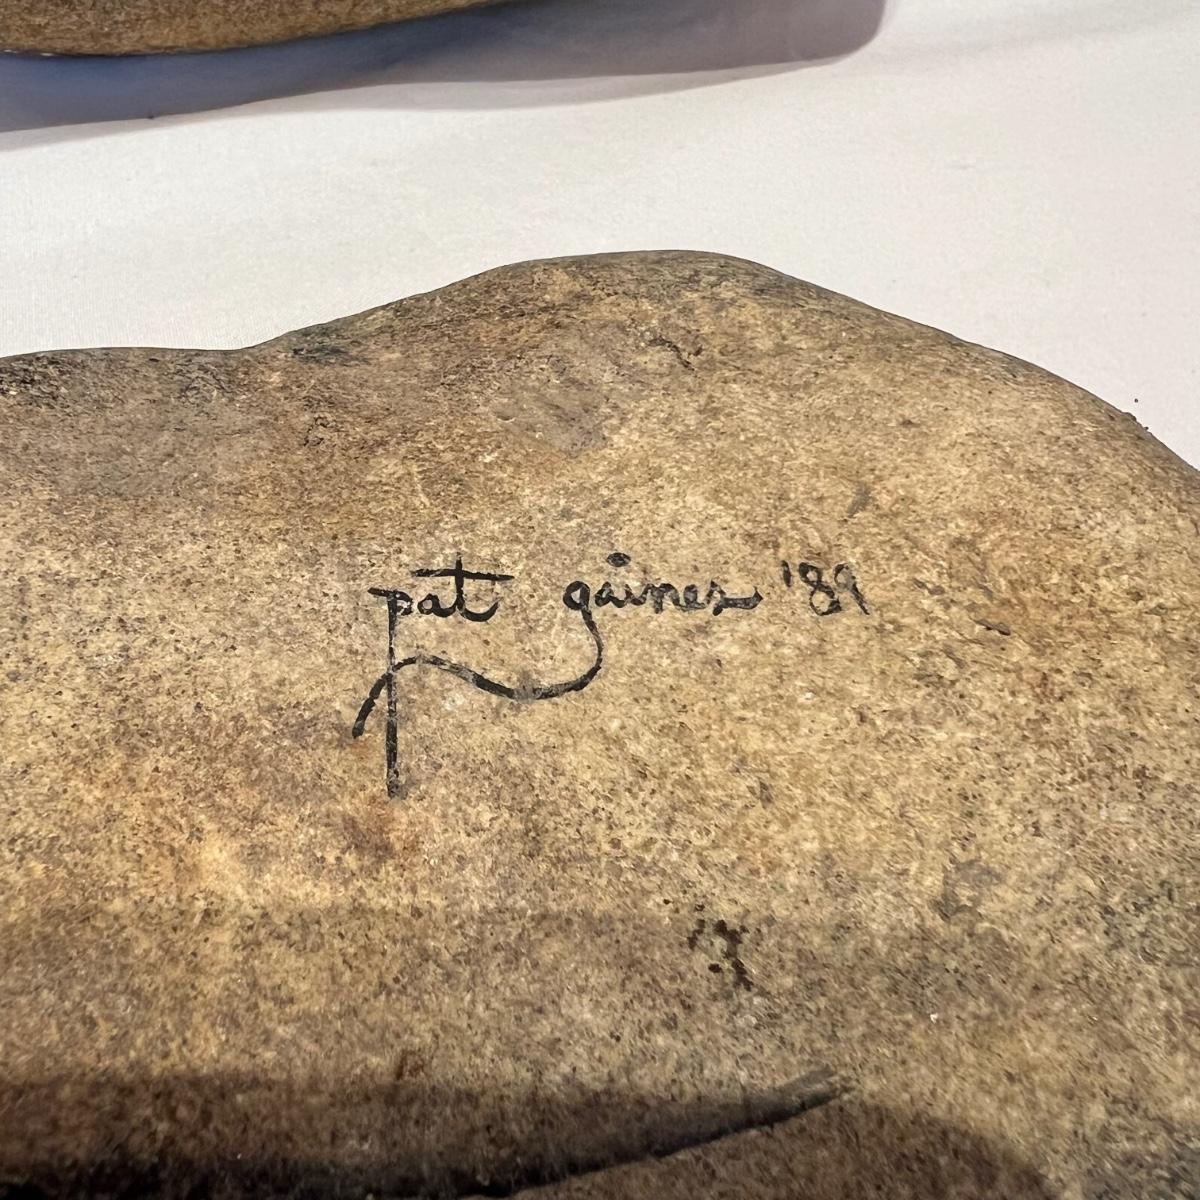 pat gaines '89